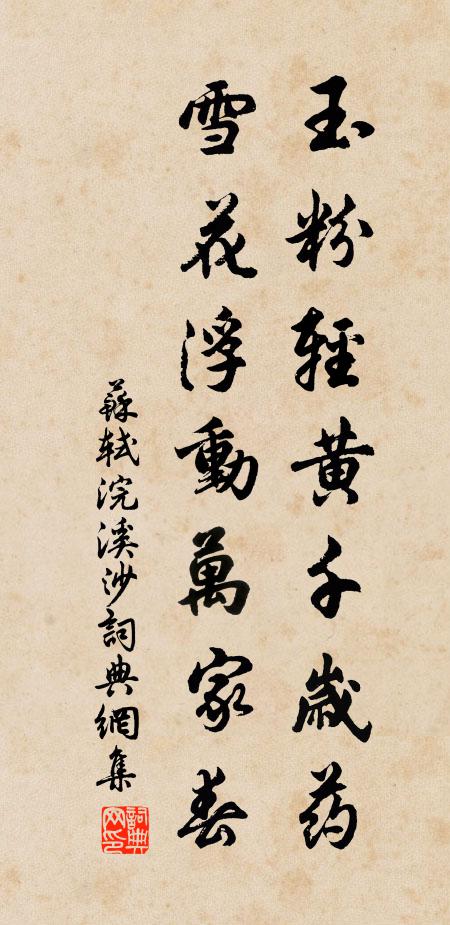 玉粉輕黃千歲药
雪花浮動萬家春
蘇軾浣溪沙詞典網集
詞典网印